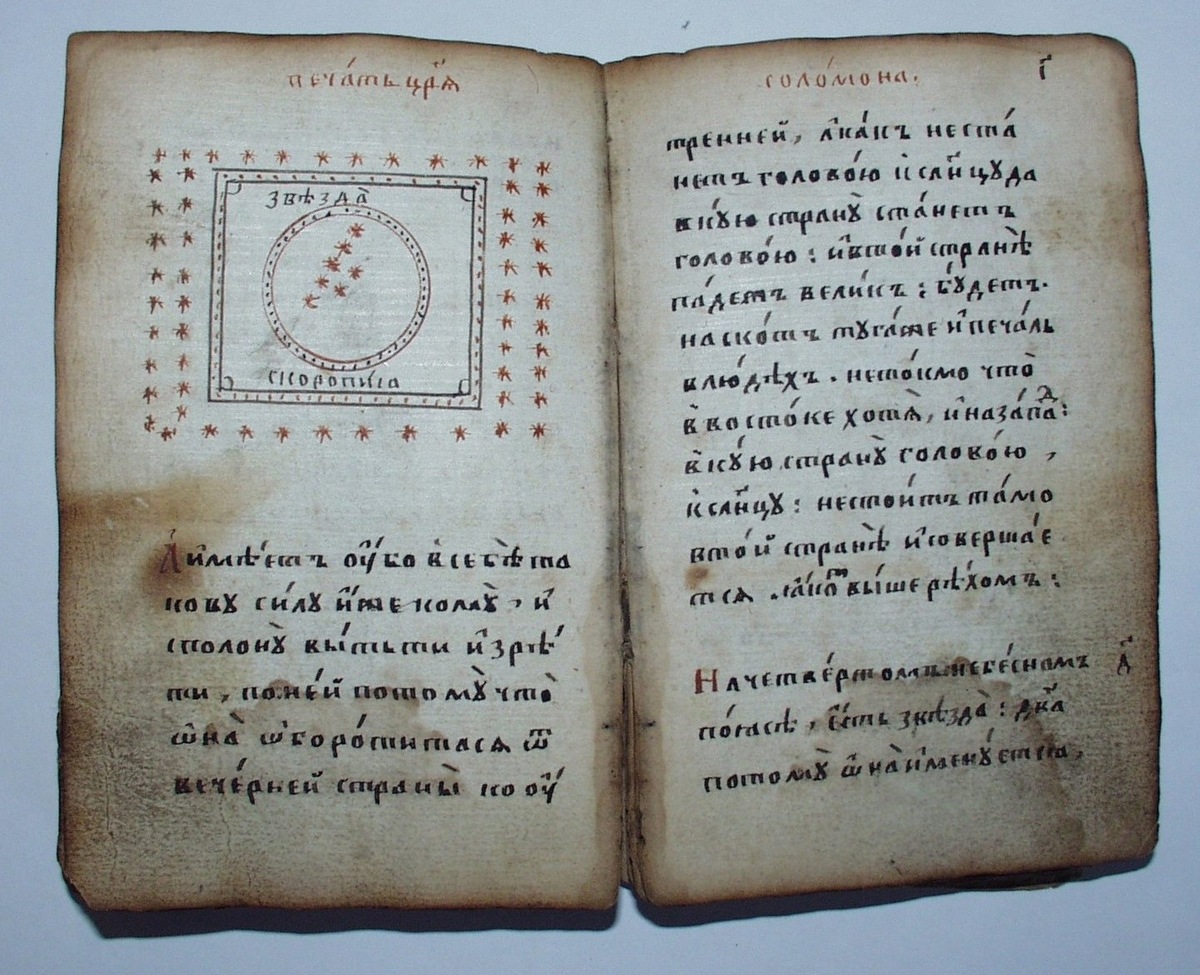 печа́ть цр҃ѧ
ѕвѣзда̀
скоропі́а
А и҆мѣ́етъ оу҆́бо в҆себѣ̀ та
кову си́лу и҆́же колꙋ̀, и҆
сполонꙋ̀ бы́тьти и҆ зрѣ́
ти, по не́й потомꙋ̀ что̀
ѡ҆на̀ ѡ҆боро́титася ѿ
вече́рней страны̀ ко оу҆́
соло́мона.
г҃
тренней, а҆ ка́къ неста́
нетъ голово́ю к҆ сл҃нцꙋ да
в кꙋ́ю странꙋ̀ ста́нетъ
голово́ю: и҆ в то́й странѣ̀
па́детъ вели́къ: бꙋ́детъ.
на ско́тъ туга́же и҆ печа́ль
в лю́дѣхъ. нето́кмо что̀
в҆ восто́ке хотѧ̀, и҆ на за́падⷣ:
в҆ кꙋ́ю странꙋ̀ голово́ю,
к҆ сл҃нцꙋ: нестои́тъ та́мо
в то́й странѣ̀ и҆ соверша́е
тсѧ ꙗ҆́коⷤ вы́ше рѣ́хомъ:
На четве́ртомъ небе́сномъ
д҃
по́ꙗсѣ, є҆́сть звѣзда̀: дв҃а
потомꙋ̀ ѡ҆на̀ и҆менꙋ́етсѧ,